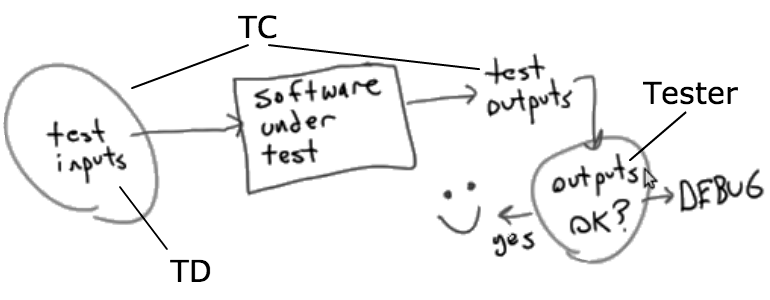 TC
test
inputs
software
under
test
test
outputs
Tester
outputs
OK?
yes
DEBUG
TD